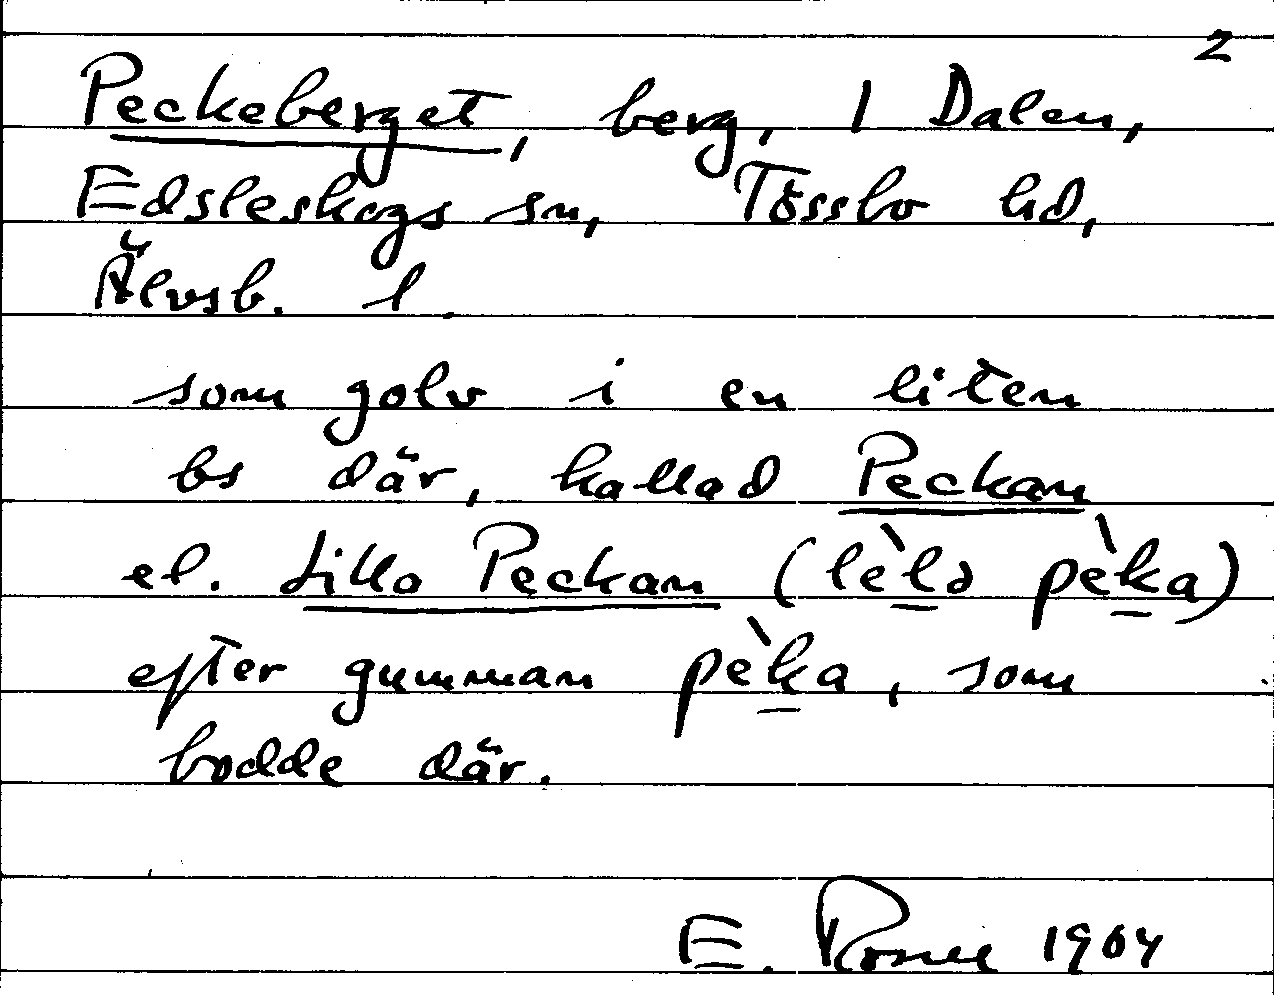 2
Peckeberget, berg, 1 Dalen,
Edsleskogs sn, Tössbo hd,
Älvsb. l.
som golv i en liten
bs där, kallad Peckan
el. Lilla Peckan (lèlə pèka)
efter gumman pèka, som
bodde där.
E. 1904